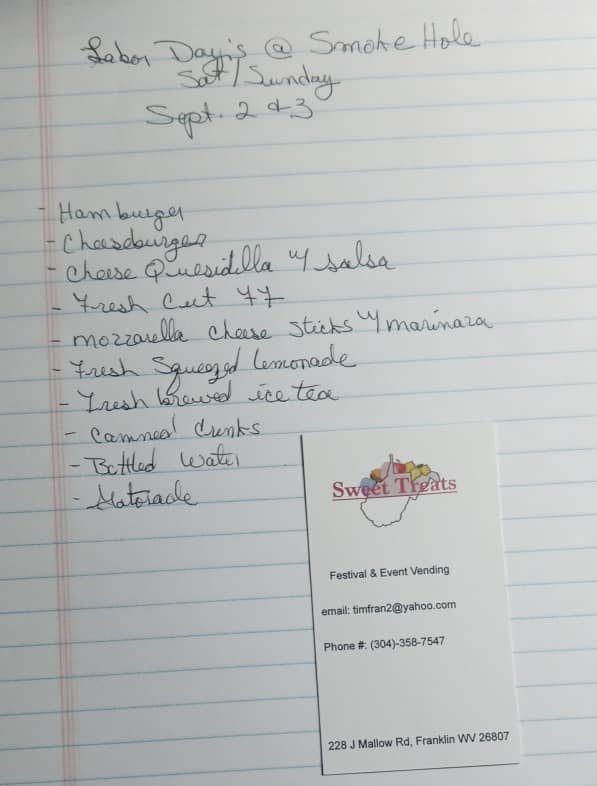 Labor Day's @ Smoke Hole
Sat/Sunday
Sept. 2 & 3
- Hamburger
- Cheeseburger
- Cheese Quesidilla w/ salsa
- Fresh Cut FF
- mozzarella cheese sticks w/ marinara
- Fresh Squeezed Lemonade
- Fresh brewed ice tea
- Canned drinks
- Bottled Water
- Gatorade
Sweet Treats
Festival & Event Vending
email: timfran2@yahoo.com
Phone #: (304)-358-7547
228 J Mallow Rd, Franklin WV 26807